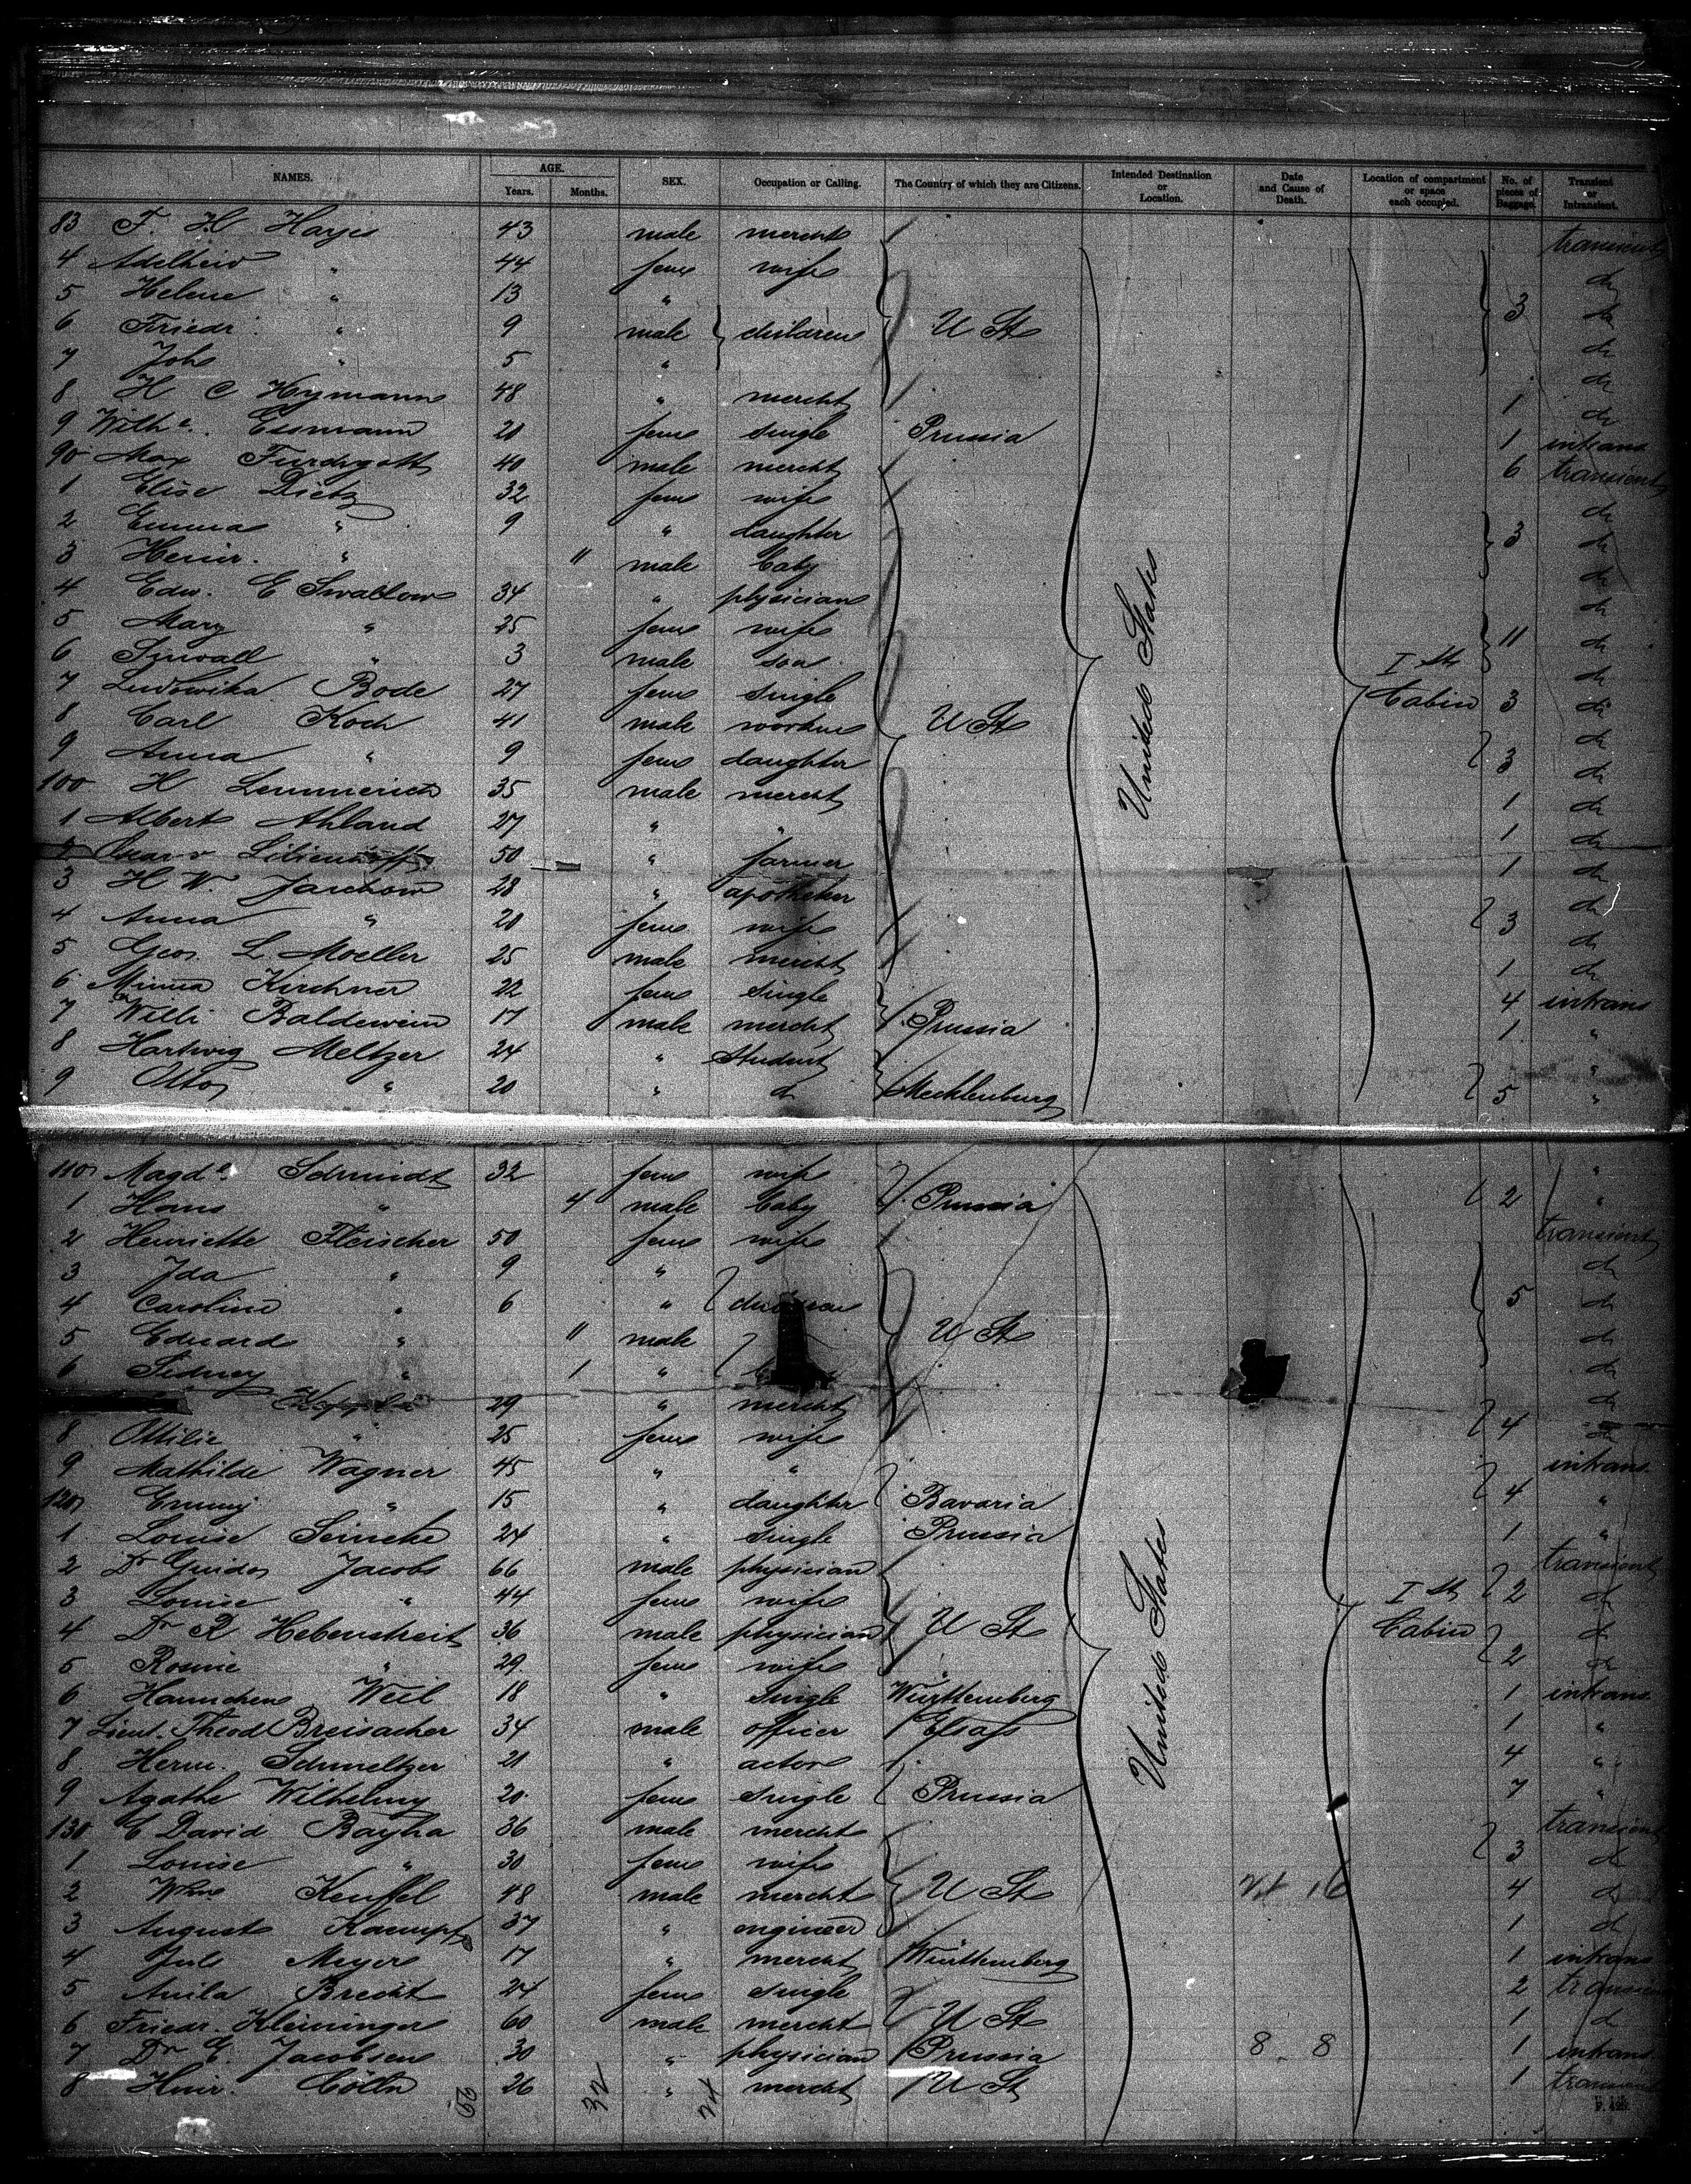 NAMES. AGE. Years. Months. SEX. Occupation or Calling. The Country of which they are Citizens. Intended Destination or Location. Date and Cause of Death. Location of compartment or space each occupied. No. of pieces of Baggage. Transient or Intransient.
83 F. H. Hayes 43 male mercht transient
4 Adelheid " 44 fem wife do
5 Helene " 13 " 3 do
6 Friedr. " 9 male children U St do
7 Joh " 5 " do
8 H C Hymann 48 " mercht 1 do
9 Wilhe. Essmann 20 fem single Prussia 1 intrans
90 Max 40 male mercht 6 transient
1 Elise Dietz 32 fem wife do
2 Emma " 9 " daughter 3 do
3 Heinr. " 11 male baby do
4 Edw. E Swallow 34 " physician do
5 Mary " 25 fem wife 11 do
6 " 3 male son I St do
7 Ludowika Bode 27 fem single Cabin 3 do
8 Carl Koch 41 male U St do
9 Anna " 9 fem daughter 3 do
100 H Lemmerich 35 male mercht 1 do
1 Albert Ahland 27 " " 1 do
50 " farmer 1 do
3 H W. 28 " apotheker do
4 Anna " 20 fem wife 3 do
5 Geo. L. Moeller 25 male mercht 1 do
6 Minna Kirchner 22 fem single 4 intrans
7 Willi Baldewein 17 male mercht Prussia 1 "
8 Hartwig Meltzer 24 " Student "
9 Otto " 20 " do Mecklenburg 5 "
United States
110 Magda. Schmidt 32 fem wife "
1 Hans " 4 male baby Prussia 2 "
2 Henriette Fleischer 50 fem wife transient
3 Ida " 9 " do
4 Caroline " 6 " children 5 do
5 Eduard " 11 male U St do
6 Sidney " 1 " do
29 " mercht do
8 Ottilie " 25 fem wife 4 do
9 Mathilde Wagner 45 " " intrans
120 Emmy " 15 " daughter Bavaria 4 "
1 Louise Seineke 24 " single Prussia 1 "
2 Dr Guido Jacobs 66 male physician transient
3 Louise " 44 fem wife I St 2 do
4 Dr R Hebenstreit 36 male physician U St Cabin do
5 Rosine " 29 fem wife 2 do
6 Hannchen Weil 18 " single Württemberg 1 intrans
7 Lieut. Theod Breisacher 34 male officer Elsass 1 "
8 Herm. Schmeltzer 21 " actor 4 "
9 Agathe Wilhelmy 20 fem single Prussia 7 "
130 C David Bayha 36 male mercht transient
1 Louise " 30 fem wife 3 do
2 Wm Keuffel 48 male mercht U St 16 4 do
3 August Kaempf 37 " engineer 1 do
4 Jul Meyer 17 " mercht Württemberg 1 intrans
5 Anila Brecht 24 fem single 2 transient
6 Friedr. Kleininger 60 male mercht U St 1 do
7 Dr E. Jacobsen 30 " physician Prussia 8 8 1 intrans
8 Heinr. Cölln 26 " mercht U St 1 transient
United States
32
F. 425.